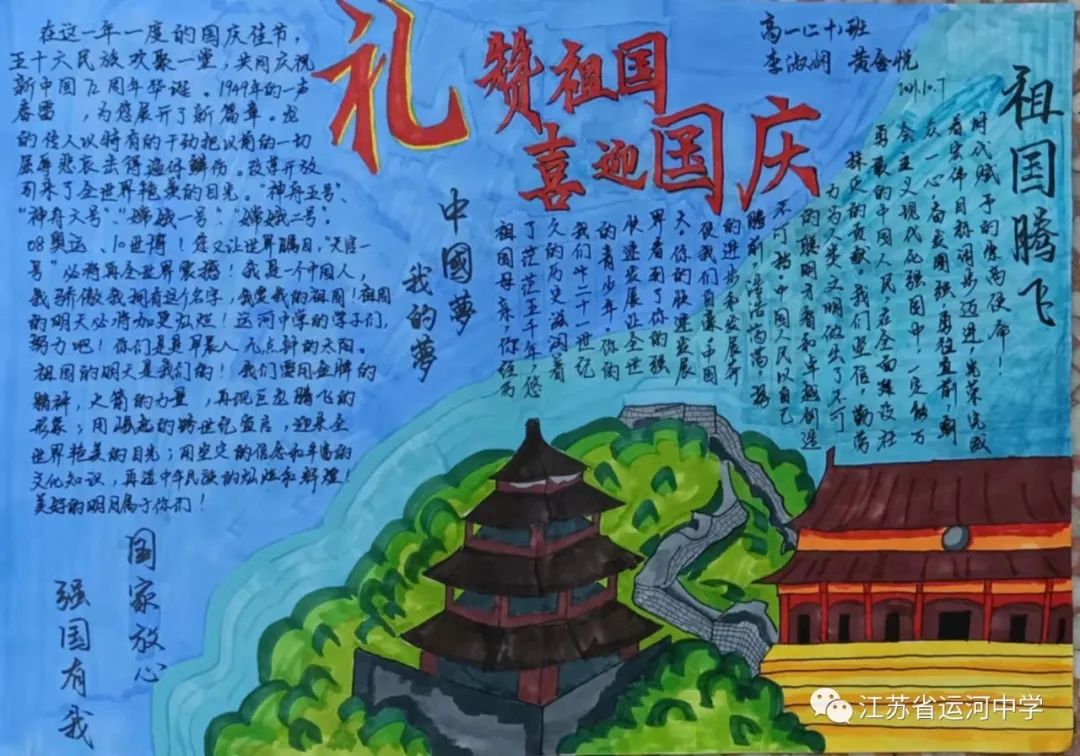 礼
赞祖国
喜迎国庆
高一二十班
李淑娴 黄金悦
2021.10.7
在这一年一度的国庆佳节,
五十六民族欢聚一堂,共同庆祝
新中国72周年华诞。1949年的一声
春雷,为您展开了新篇章。龙
的传人以特有的干劲把以前的一切
屈辱悲哀击得遍体鳞伤。改革开放
引来了全世界艳羡的目光。“神舟五号”、
“神舟六号”“嫦娥一号”“嫦娥二号”.
08奥运、10世博!您又让世界瞩目,“天宫一
号”必将再全世界震撼!我是一个中国人,
我骄傲我拥有这个名字,我爱我的祖国!祖国
的明天必将加更弘烂!运河中学的学子们,
努力吧!你们是早晨八九点钟的太阳。
祖国的明天是我们的!我们要用金牌的
精神,火箭的力量,再现巨龙腾飞的
形象;用崛起的跨世纪宣言,迎来全
世界艳羡的目光;用坚定的信念和丰富的
文化知识,再造中华民族的弘烂和辉煌!
美好的明月属于你们!
中國夢
我的夢
祖国母亲,你经历
了茫茫五千年,悠
久的历史滋润着
我们二十一世纪
的青少年。你的
快速发展让全世
界看到了你的强
大,你的快速发展
使我们自豪,中国
的进步和发展所
腾前 浩浩荡荡,势
不可挡 中国人民以自己
的聪明才智和卓越创造
力为人类文明做出了不可
抹灭的贡献。我们坚信,勤劳
勇敢的中国人民,在全面建设社
会主义现代化强国中,一定能万
众一心,奋发图强,勇往直前,朝
着宏伟目标阔步迈进,光荣完成
时代赋予的崇高使命!
祖国腾飞
国家放心
强国有我
江苏省运河中学